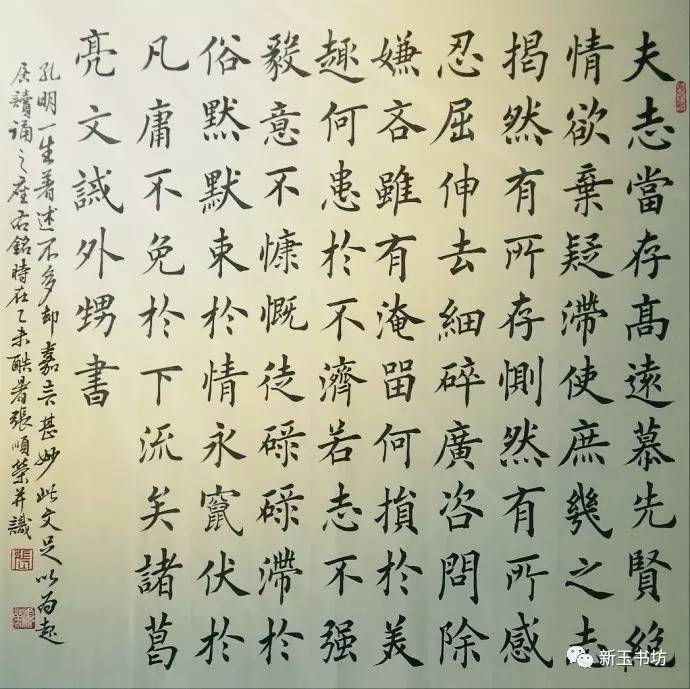 夫志當存高遠慕先賢絕
情欲棄疑滯使庶幾之志
揭然有所存惻然有所感
忍屈伸去細碎廣咨問除
嫌吝雖有淹畱何損於美
趣何患於不濟若志不强
毅意不慷慨徒碌碌滯於
俗默默束於情永竄伏於
凡庸不免於下流矣諸葛
亮文誡外甥書
孔明一生著述不多却嘉言甚妙此文足以为起
居讀誦之座右銘時在乙未酷暑張順榮并識
新玉书坊